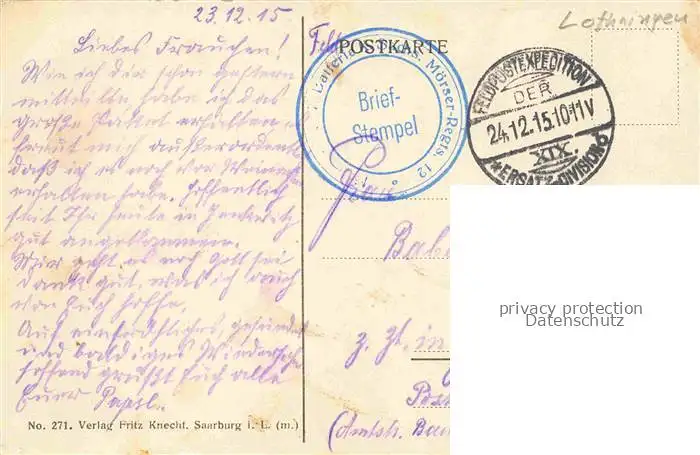 23.12.15
Liebes Frauchen!
Wie ich dir schon gestern
mitteilte, habe ich das
große Paket erhalten,
freut mich außerordentl.
daß ich es noch vor Weihn
erhalten habe. Hoffentlich
seit Ihr heute in
gut angekommen.
Mir geht es noch Gott sei
Dank gut, was ich auch
von Euch hoffe.
Auf ein gesundes
und baldiges Wiedersehen
hoffend grüßt Euch alle
Euer Papsl.
No. 271. Verlag Fritz Knecht, Saarburg i. L. (m.)
Lothringen
Feldp
POSTKARTE
Mörser-Regts. 12
Brief-
Stempel
FELDPOSTEXPEDITION
DER
24.12.15.10-11V
XIX.
*ERSATZ-DIVISION
Frau
Babe
z. Zt. in
Post
(Amtsh. Bau
privacy protection
Datenschutz